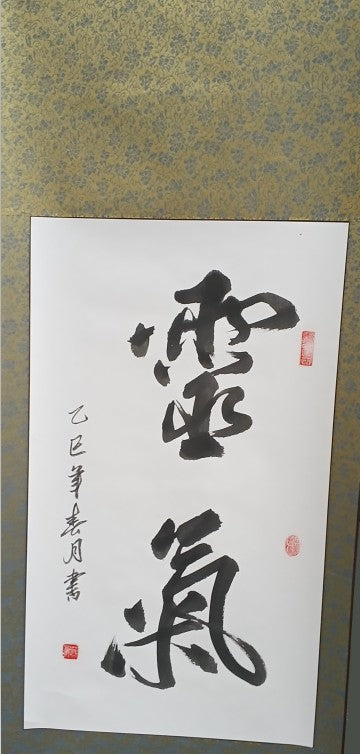 靈氣
乙巳年春月書